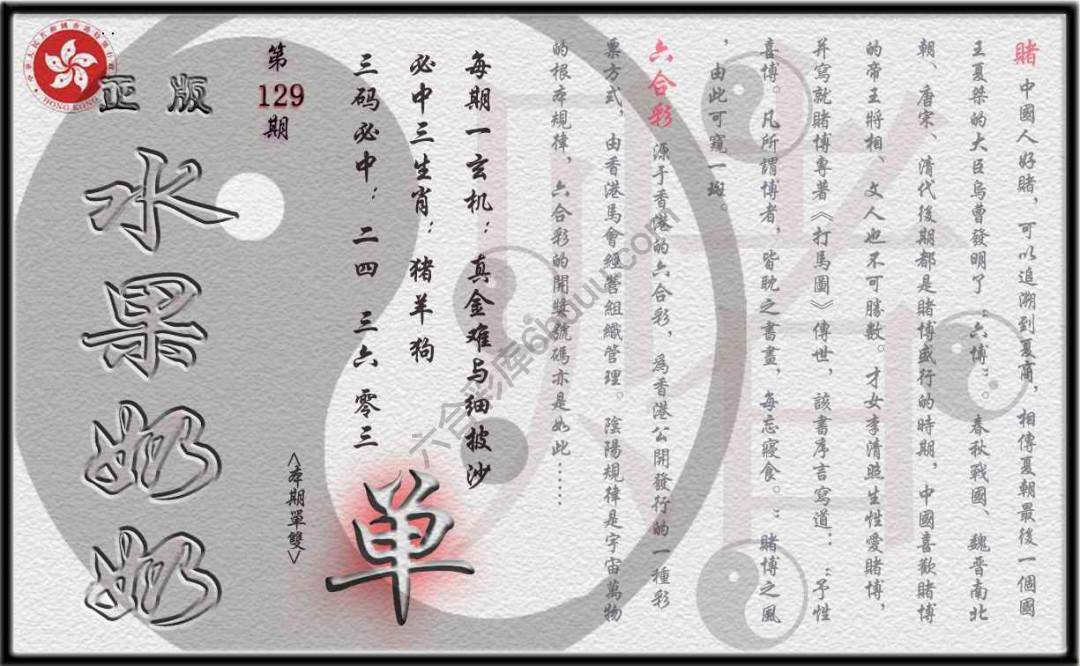 賭 中國人好賭，可以追溯到夏商，相傳夏朝最後一個國
王夏桀的大臣烏曹發明了：六博：。春秋戰國、魏晉南北
朝、唐宋、清代後期都是賭博盛行的時期，中國喜歡賭博
的帝王將相、文人也不可勝數。才女李清照生性愛賭博，
并寫就賭博專著《打馬圖》傳世，該書序言寫道：：予性
喜博。凡所謂博者，皆耽之晝晝，每忘寢食。：賭博之風
，由此可窺一斑。
六合彩 源于香港的六合彩，為香港公開發行的一種彩
票方式，由香港馬會經營組織管理。陰陽規律是宇宙萬物
的根本規律，六合彩的開獎號碼亦是如此……
每期一玄机：真金难与细披沙
必中三生肖：猪羊狗
三码必中：二四 三六 零三
第
129
期
<本期單雙>
单
正版
水果奶奶
HONG KONG
六合彩库6buuu.com